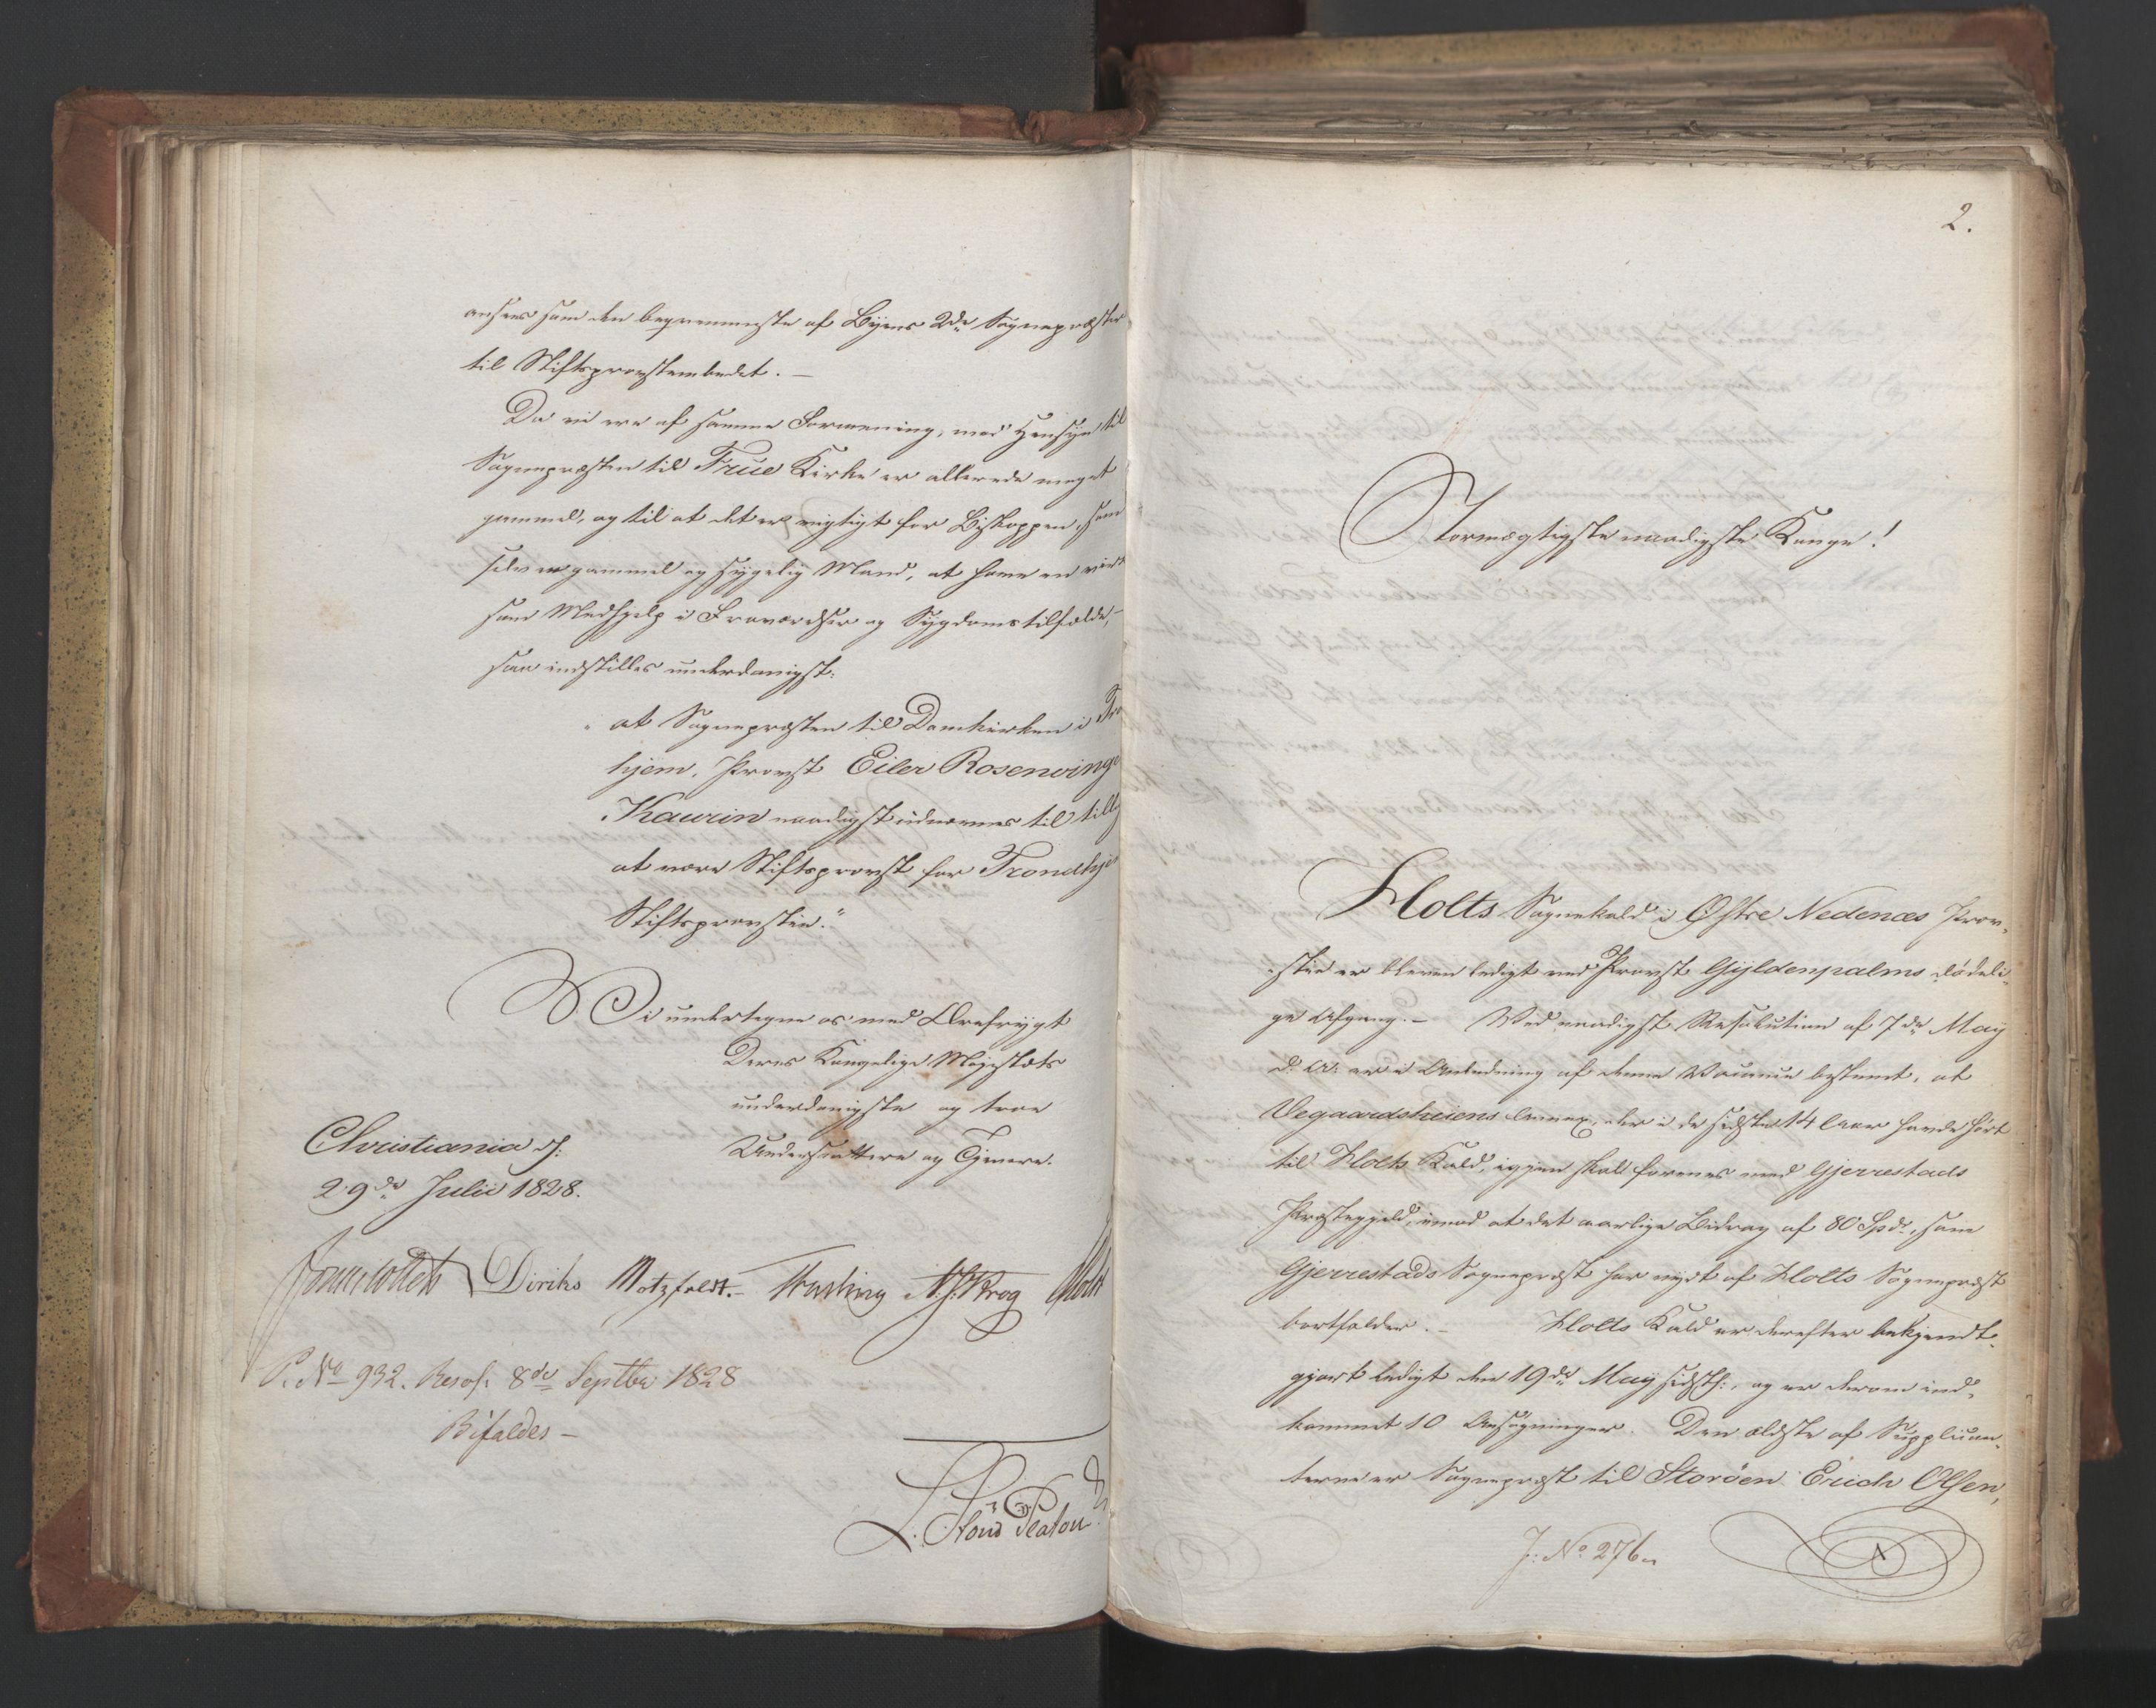 ansees som den beqvemmeste af Byens 2de Sognepræster
til Stiftsprovstembedet. –
Da vi ere af samme Formening, med Hensyn til
Sognepræsten til Frue Kirke er allerede meget
gammel, og til at det er vigtigt for Biskoppen, som
selv er gammel og sygelig Mand, at have en virk
som Medhjelp i Fraværelses og Sygdomstilfælde, –
saa indstilles underdanigst:
"at Sognepræsten til Domkirken i Tro
hjem, Provst Eiler Rosenvinge
Kaurin naadigst udnævnes til tillig
at være Stiftsprovst for Trondhje
Stiftsprovstie."
Vi undertegne os med Ærefrygt
Deres Kongelige Majestæts
underdanigste og troe
Undersaattere og Tjenere.
Christiania d:
29de Julii 1828.
Jonas Collett Diriks Motzfeldt. – Fasting A. S. Krog Holst
P. No 932. Resol: 8de Septbr 1828
Bifaldes –
2.
Stormægtigste naadigste Konge!
Holts Sognekald i Østre Nedenæs Prov-
stie er bleven ledigt ved Provst Gyldenpalms dödeli-
ge Afgang. – Ved naadigst Resolution af 7de May
d. A. er i Anledning af denne Vacance bestemt, at
Vegaardsheiens Annex, der i de sidste 14 Aar havde hört
til Holts Kald, igjen skal forenes med Gjerrestads
Præstegjeld, imod at det aarlige Bidrag af 80 Spd., som
Gjerrestads Sognepræst har nydt af Holts Sognepræst
bortfalder. – Holts Kald er derefter bekjendt-
gjort ledigt den 19de May sidstl:, og er derom ind-
kommet 10 Ansøgninger. Den ældste af Supplican-
terne er Sognepræst til Storöen Erich Olsen,
J: No 276